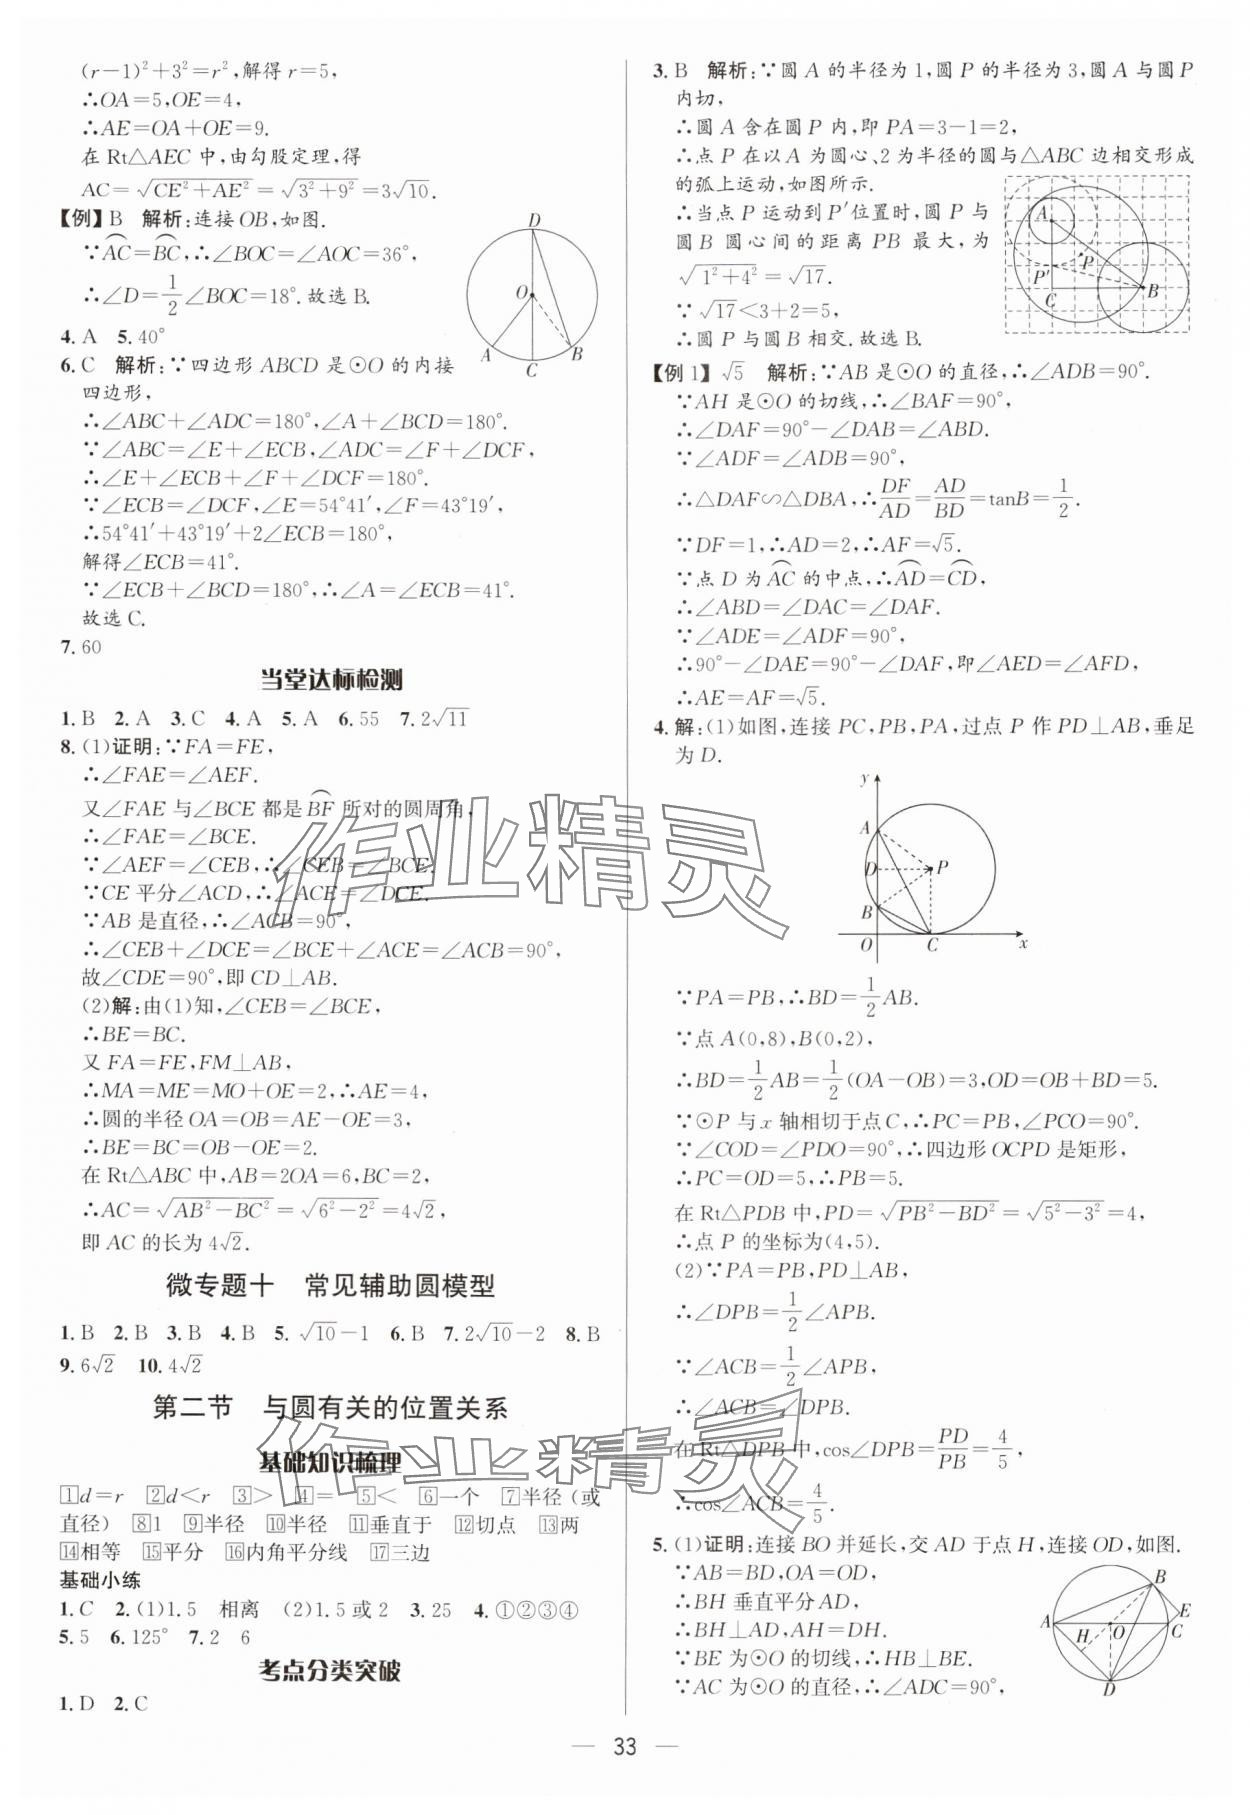 (r－1)²＋3²＝r²,解得r＝5,
∴OA＝5,OE＝4,
∴AE＝OA＋OE＝9.
在Rt△AEC中,由勾股定理,得
AC＝√(CE²＋AE²)＝√(3²＋9²)＝3√10.
【例】B 解析:连接OB,如图.
∵⌒AC＝⌒BC,∴∠BOC＝∠AOC＝36°,
∴∠D＝1/2∠BOC＝18°.故选B.
D
O
A
B
C
4. A 5. 40°
6. C 解析:∵四边形ABCD是⊙O的内接
四边形,
∴∠ABC＋∠ADC＝180°,∠A＋∠BCD＝180°.
∵∠ABC＝∠E＋∠ECB,∠ADC＝∠F＋∠DCF,
∴∠E＋∠ECB＋∠F＋∠DCF＝180°.
∵∠ECB＝∠DCF,∠E＝54°41′,∠F＝43°19′,
∴54°41′＋43°19′＋2∠ECB＝180°,
解得∠ECB＝41°.
∵∠ECB＋∠BCD＝180°,∴∠A＝∠ECB＝41°.
故选C.
7. 60
当堂达标检测
1. B 2. A 3. C 4. A 5. A 6. 55 7. 2√11
8. (1)证明:∵FA＝FE,
∴∠FAE＝∠AEF.
又∠FAE与∠BCE都是⌒BF所对的圆周角,
∴∠FAE＝∠BCE.
∵∠AEF＝∠CEB,∴∠CEB＝∠BCE.
∵CE平分∠ACD,∴∠ACE＝∠DCE.
∵AB是直径,∴∠ACB＝90°,
∴∠CEB＋∠DCE＝∠BCE＋∠ACE＝∠ACB＝90°,
故∠CDE＝90°,即CD⊥AB.
(2)解:由(1)知,∠CEB＝∠BCE,
∴BE＝BC.
又FA＝FE,FM⊥AB,
∴MA＝ME＝MO＋OE＝2,∴AE＝4,
∴圆的半径OA＝OB＝AE－OE＝3,
∴BE＝BC＝OB－OE＝2.
在Rt△ABC中,AB＝2OA＝6,BC＝2,
∴AC＝√(AB²－BC²)＝√(6²－2²)＝4√2,
即AC的长为4√2.
微专题十 常见辅助圆模型
1. B 2. B 3. B 4. B 5. √10－1 6. B 7. 2√10－2 8. B
9. 6√2 10. 4√2
第二节 与圆有关的位置关系
基础知识梳理
1 d＝r 2 d＜r 3 ＞ 4 ＝ 5 ＜ 6 一个 7 半径(或
直径) 8 1 9 半径 10 半径 11 垂直于 12 切点 13 两
14 相等 15 平分 16 内角平分线 17 三边
基础小练
1. C 2. (1)1.5 相离 (2)1.5或2 3. 25 4. ①②③④
5. 5 6. 125° 7. 2 6
考点分类突破
1. D 2. C
3. B 解析:∵圆A的半径为1,圆P的半径为3,圆A与圆P
内切,
∴圆A含在圆P内,即PA＝3－1＝2,
∴点P在以A为圆心、2为半径的圆与△ABC边相交形成
的弧上运动,如图所示.
∴当点P运动到P′位置时,圆P与
圆B圆心间的距离PB最大,为
√(1²＋4²)＝√17.
∵√17＜3＋2＝5,
∴圆P与圆B相交.故选B.
A
P
P′
C
B
【例1】√5 解析:∵AB是⊙O的直径,∴∠ADB＝90°.
∵AH是⊙O的切线,∴∠BAF＝90°,
∴∠DAF＝90°－∠DAB＝∠ABD.
∵∠ADF＝∠ADB＝90°,
∴△DAF∽△DBA,∴DF/AD＝AD/BD＝tanB＝1/2.
∵DF＝1,∴AD＝2,∴AF＝√5.
∵点D为⌒AC的中点,∴⌒AD＝⌒CD,
∴∠ABD＝∠DAC＝∠DAF.
∵∠ADE＝∠ADF＝90°,
∴90°－∠DAE＝90°－∠DAF,即∠AED＝∠AFD,
∴AE＝AF＝√5.
4. 解:(1)如图,连接PC,PB,PA,过点P作PD⊥AB,垂足
为D.
y
A
D
P
B
O
C
x
∵PA＝PB,∴BD＝1/2AB.
∵点A(0,8),B(0,2),
∴BD＝1/2AB＝1/2(OA－OB)＝3,OD＝OB＋BD＝5.
∵⊙P与x轴相切于点C,∴PC＝PB,∠PCO＝90°.
∵∠COD＝∠PDO＝90°,∴四边形OCPD是矩形,
∴PC＝OD＝5,∴PB＝5.
在Rt△PDB中,PD＝√(PB²－BD²)＝√(5²－3²)＝4,
∴点P的坐标为(4,5).
(2)∵PA＝PB,PD⊥AB,
∴∠DPB＝1/2∠APB.
∵∠ACB＝1/2∠APB,
∴∠ACB＝∠DPB.
在Rt△DPB中,cos∠DPB＝PD/PB＝4/5,
∴cos∠ACB＝4/5.
5. (1)证明:连接BO并延长,交AD于点H,连接OD,如图.
∵AB＝BD,OA＝OD,
∴BH垂直平分AD,
∴BH⊥AD,AH＝DH.
∵BE为⊙O的切线,∴HB⊥BE.
∵AC为⊙O的直径,∴∠ADC＝90°,
B
E
A
H
O
C
D
作业精灵
作业精灵
33